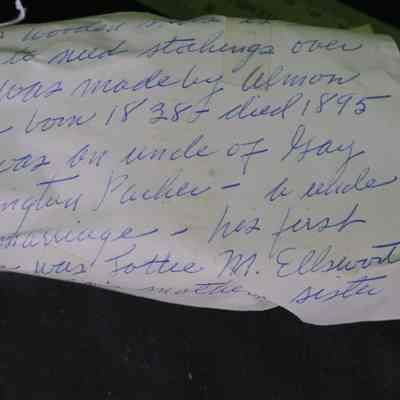 wooden
to mend stockings over
was made by Almon
born 1838 - died 1895
was an uncle of Gay
ington Parker - a uncle
marriage - his first
was Lottie M. Ellswort
sister